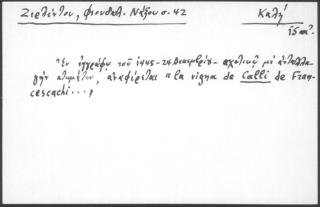 Ζερλέντου, Φεουδαλ. Νάξου σ. 42
Καλή
15 αἰ.
"Ἐν ἐγγράφῳ τοῦ 1445-24 Δεκεμβρίου- σχετικῷ μὲ ἀνταλλα
γὴν κτημάτων, ἀναφέρεται "la vigna de Calli de Fran-
cescachi...„